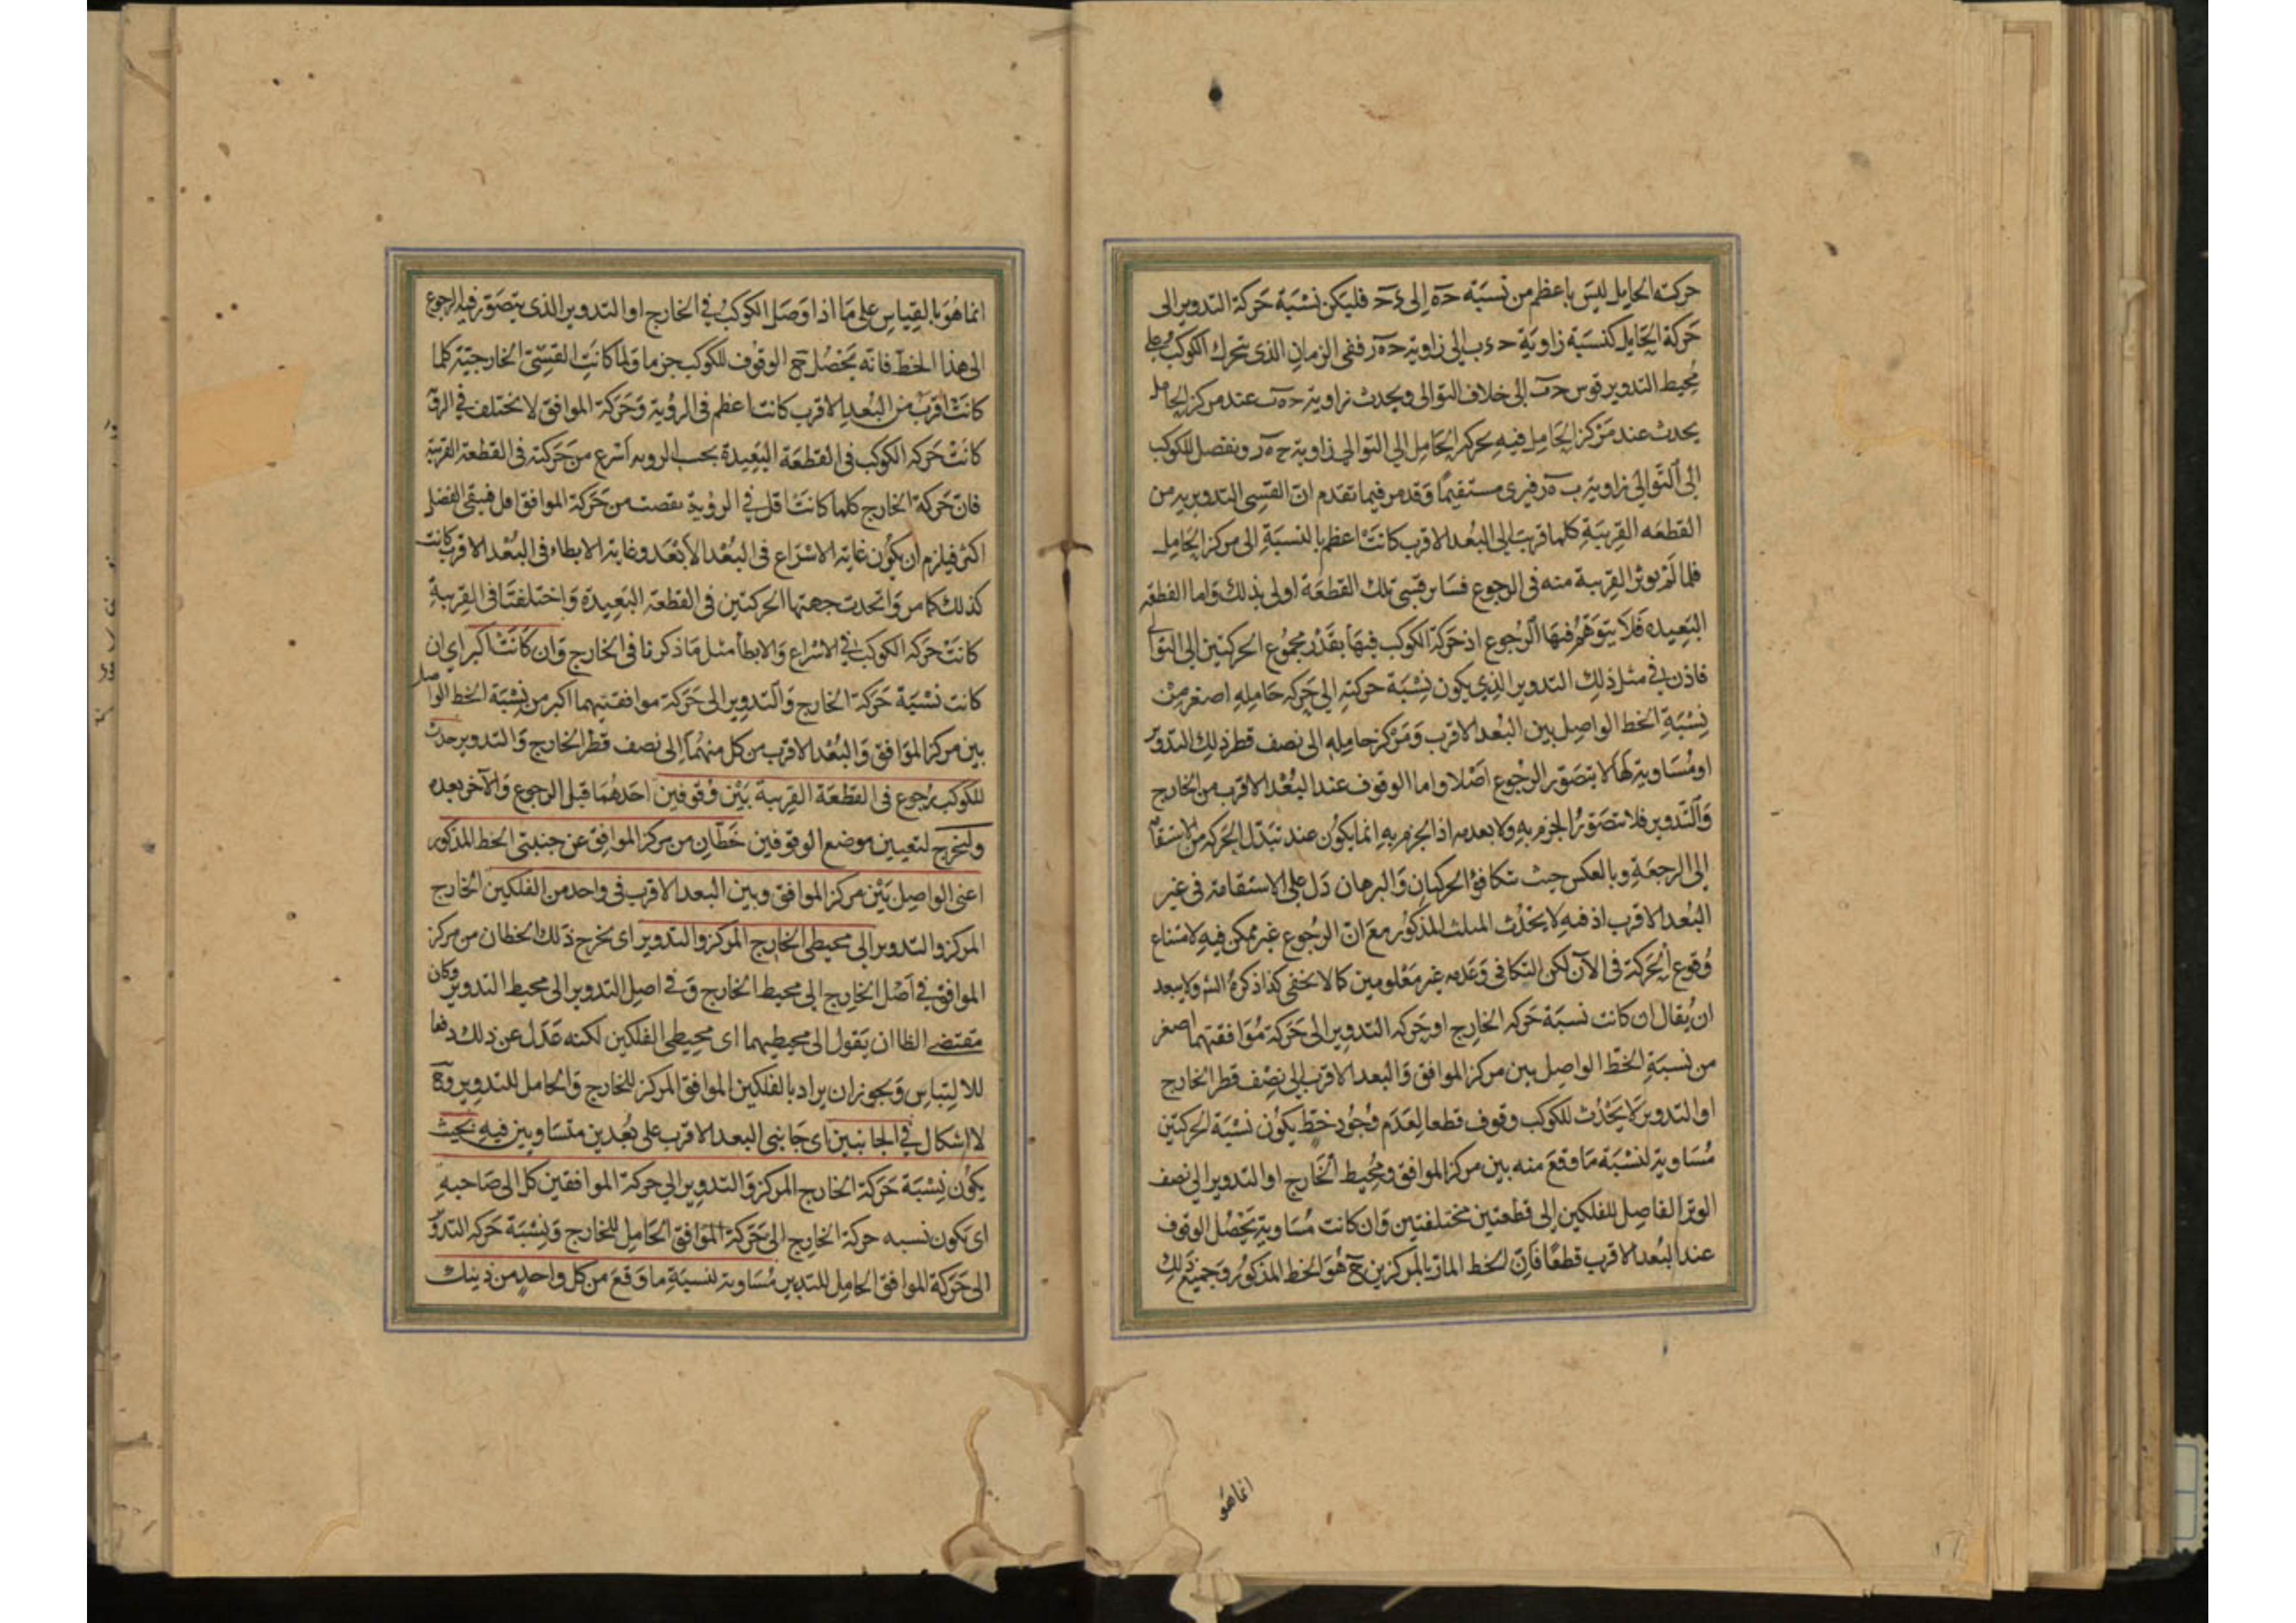 حركته الحامل ليس باعظم من نسبة حه الى ءح فليكن نسبة حركة التدوير الى
حركة الحامل كنسبة زاوية ح ء ب الى زاوية حه ر ففى الزمان الذى يتحرك الكوكب على
محيط التدوير قوس حب الى خلاف التوالى ويحدث زاوية حه ب عند مركز الحامل
يحدث عند مركز الحامل فيه بحركة الحامل الى التوالى زاوية ح ه ر ونفصل للكوكب
الى التوالى زاوية ب ه ر فيرى مستقيما وقد مر فيما تقدم ان القسى التدويرية من
القطعه القريبة كلما قربت الى البعد الاقرب كانت اعظم بالنسبة الى مركز الحامل
فلما لم يوثر القريبة منه فى الرجوع فسائر قسى تلك القطعة اولى بذلك واما القطعة
البعيده فلا يتوهم فيها الرجوع اذ حركة الكوكب فيها بقدر مجموع الحركتين الى التوالى
فاذن فى مثل ذلك التدوير الذى يكون نسبة حركته الى حركه حامله اصغر من
نسبة الخط الواصل بين البعد الاقرب ومركز حامله الى نصف قطر ذلك التدوير
او مساوية لها لا يتصور الرجوع اصلا واما الوقوف عند البعد الاقرب من الخارج
والتدوير فلا تتصور الجزم به ولا بعدمه اذ الجزم به انما يكون عند تبدل الحركة من الاستقامة
الى الرجعة وبالعكس حيث تتكافؤ الحركتان والبرهان دل على الاستقامة فى غير
البعد الاقرب اذ فيه لا يحدث المثلث المذكور مع ان الرجوع غير ممكن فيه لامتناع
وقوع الحركة فى الآن لكن التكافى وعدمه غير معلومين كما لا يخفى كذا ذكره الش ولا يبعد
ان يقال ان كانت نسبة حركه الخارج او حركه التدوير الى حركة موافقتهما اصغر
من نسبة الخط الواصل بين مركز الموافق والبعد الاقرب الى نصف قطر الخارج
او التدوير لا يحدث للكوكب وقوف قطعا لعدم وجود خط يكون نسبة الحركتين
مساوية لنسبة ما وقع منه بين مركز الموافق ومحيط الخارج او التدوير الى نصف
الوتر الفاصل للفلكين الى قطعتين مختلفتين وان كانت مساوية يحصل الوقوف
عند البعد الاقرب قطعا فان الخط المار بالمركزين ح هو الخط المذكور وجميع ذلك
انما هو
انما هو بالقياس على ما اذا وصل الكوكب فى الخارج او التدوير الذى يتصور فيه الرجوع
الى هذا الخط فانه يحصل ح الوقوف للكوكب جزما ولما كانت القسى الخارجية كلما
كانت اقرب من البعد الاقرب كانت اعظم فى الروية وحركة الموافق لا تختلف فى الروية
كانت حركه الكوكب فى القطعة البعيدة بحسب الرويه اسرع من حركته فى القطعة القريبة
فان حركة الخارج كلما كانت اقل فى الروية نقصت من حركة الموافق اقل فيبقى الفضل
اكثر فيلزم ان يكون غاية الاسراع فى البعد الابعد وغاية الابطاء فى البعد الاقرب كانت
كذلك كما مر واتحدت جهتها الحركتين فى القطعة البعيدة واختلفتا فى القريبة
كانت حركه الكوكب فى الاسراع والابطأ مثل ما ذكرنا فى الخارج وان كانت اكبر اى ان
كانت نسبة حركة الخارج والتدوير الى حركة موافقتيهما اكبر من نسبة الخط الواصل
بين مركز الموافق والبعد الاقرب من كل منهما الى نصف قطر الخارج والتدوير حدث
للكوكب رجوع فى القطعة القريبة بين وقوفين احدهما قبل الرجوع والآخر بعده
ولنخرج لتعيين موضع الوقوفين خطان من مركز الموافق عن جنبتى الخط المذكور
اعنى الواصل بين مركز الموافق وبين البعد الاقرب فى واحد من الفلكين الخارج
المركز والتدوير الى محيطى الخارج المركز والتدوير اى يخرج ذلك الخطان من مركز
الموافق فى اصل الخارج الى محيط الخارج وفى اصل التدوير الى محيط التدوير وكان
مقتضى الظا ان يقول الى محيطيهما اى محيطى الفلكين لكنه عدل عن ذلك دفعا
للالتباس ويجوز ان يراد بالفلكين الموافق المركز للخارج والحامل للتدوير وح
لا اشكال فى الجانبين اى جانبى البعد الاقرب على بعدين متساويين فيه بحيث
يكون نسبة حركة الخارج المركز والتدوير الى حركة الموافقين كل الى صاحبه
اى يكون نسبه حركة الخارج الى حركة الموافق الحامل للخارج ونسبة حركه التدوير
الى حركة الموافق الحامل للتدوير مساوية لنسبة ما وقع من كل واحد من ذينك